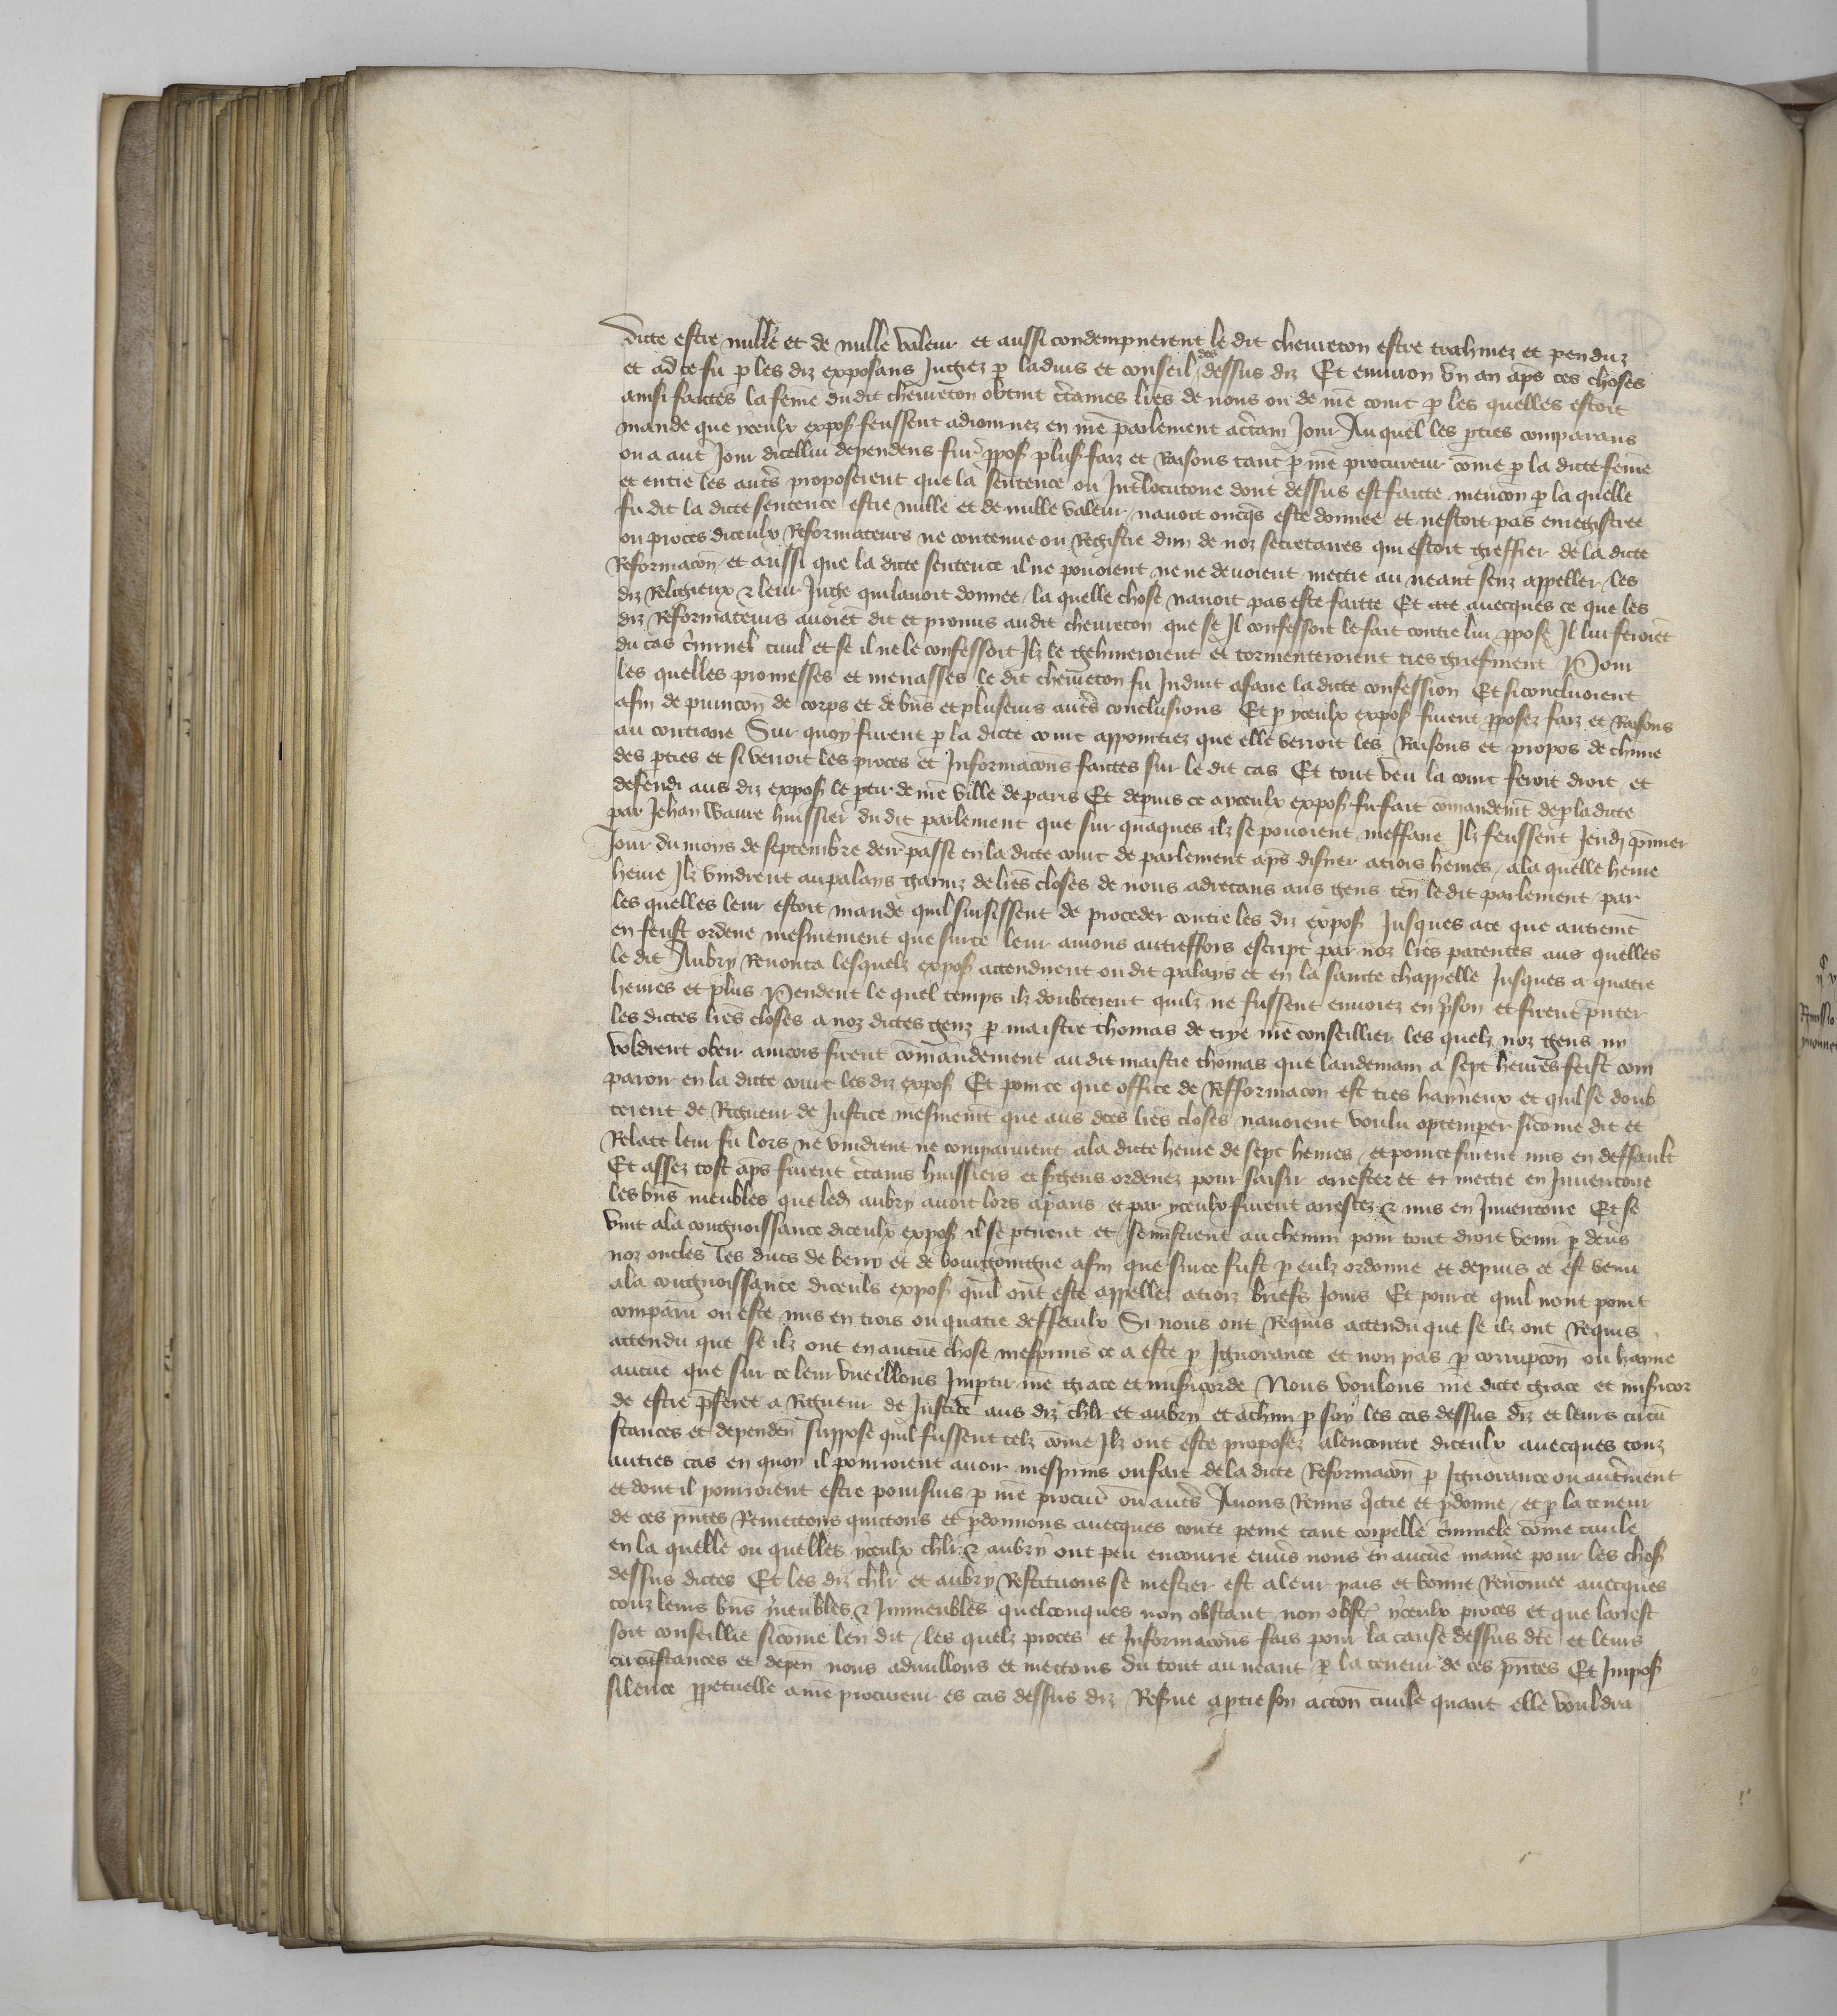 dicte estre nulle et de nulle valeur et aussi condempnerent le dit chevreton estre trahinez et penduz
et ad ce fu p les diz exposans Jugiez p ladvis et conseil des dessus diz Et environ un an aps ces choses
ainsi faictes la feme du dit chevreton obtint ctaines lres de nous ou de nre court p les quelles estoit
mande que yceulx expos feussent adiournez en nre parlement a ctain Jour Au quel les pties comparans
ou a aut Jour dicellui dependens fur ppos plus faiz et Raisons tant p nre procureur come p la dicte feme
et entre les auts proposerent que la sentence ou Intlocutoire dont dessus est faicte mencon p la quelle
fu dit la dicte sentence estre nulle et de nulle valeur navoit oncqs este donnee et nestoit pas enregistree
ou proces diceulx Reformateurs ne contenue ou Registre dun de noz secretaires qui estoit greffier de la dicte
Reformacon et aussi que la dicte sentence il ne povoient ne ne devoient mettre au neant senz appeller les
diz Religieux & leur Juge qui lavoit donnee la quelle chose navoit pas este faitte Et avecques ce que les
diz Reformateurs avoiet dit et promis au dit chevreton que se Il confessoit le fait contre lui ppose Il lui feroiet
du cas criminel civil et se il ne le confessoit Ilz le gehineroient et tormenteroient tres griefment Pour
les quelles promesses et menasses le dit chevreton fu Induit a faire la dicte confession Et si concluoient
afin de punicon de corps et de bns et pluseurs auts conclusions Et p yceulx expos furent pposez faiz et Raisons
au contraire Sur quoy furent p la dicte court appointiez que elle verroit les Raisons et propos de chune
des pties et si verroit les proces et Informacons faictes sur le dit cas Et tout veu la court feroit droit et
defendi aus diz expos le ptir de nre ville de paris Et depuis ce a yceulx expos fu fait comandemt de p la dicte
par Jehan Wavre huissier du dit parlement que sur quaques ilz se povoient meffaire Ilz feussent Jeudi pmier
Jour du moys de septembre derr passe en la dicte court de parlement aps disner a trois heures a la quelle heure
heure Ilz vindrent au palays garniz de lres closes de nous adrecans aus gens ten le dit parlement par
les quelles leur estoit mande quil sursissent de proceder contre les diz expos Jusques ace que autremt
en feust ordene mesmement que sur ce leur avions autreffois escript par noz lres patentes aus quelles
le dit Aubry Renonca lesquelz expos attendirent ou dit palays et en la saincte chappelle Jusques a quatre
heures et plus Pendent le quel temps ilz doubterent quilz ne fussent envoiez en prison et firent pnter
les dictes lres closes a noz dictes genz p maistre thomas de trye nre conseillier les quelz noz gens ny
voldrent obeir aincois firent comandement au dit maistre thomas que landemain a sept heures feist com
paroir en la dicte court les diz expos Et pour ce que office de Refformacon est tres hayneux et quil se doub
terent de Rigueur de Justice mesmemt que aus dces lres closes navoient voulu optemperer sicome dit et
Relate leur fu lors ne vindrent ne comparurent a la dicte heure de sept heures et pour ce furent mis en deffault
Et assez tost aps furent ctains huissiers et sgens ordenez pour saisir arrester et et mettre en Inventoire
les bns meubles que led aubry avoit lors a paris et par yceulx furent arrestez & mis en Inventoire Et se
vint a la congnoissance diceulx expos il se ptirent et se mistrent au chemin pour tout droit venir p devs
noz oncles les ducs de berry et de bourgoingne afin que sur ce fust p eulz ordonne et depuis ce est venu
a la congnoissance diceuls expos quil ont este appellez a trois briefs Jours Et pour ce quil nont point
comparu ou este mis en trois ou quatre deffaulx Si nous ont Requis attendu que se ilz ont Requis
attendu que se ilz ont en aucune chose mespris ce a este p Ignorance et non pas p corrupcon ou hayne
aucue que sur ce leur vueillons Imptir nre grace et misicorde Nous voulons nre dicte grace et misicor
de estre pferee a Rigueur de Justice aus diz chlr et aubry et a chun p soy les cas dessus diz et leurs circu
stances et dependen suppose quil fussent telz come Ilz ont este proposez alencontre diceulx avecques touz
autres cas en quoy il pourroient avoir mespris ou fait de la dicte Reformacon p Ignorance ou autrement
et dont il pourroient estre poursuis p nre procur ou auts Avons Remis qctie et pdonne et p la teneur
de ces pntes Remettons quictons et pdonnons avecques toute peine tant corpelle criminele come civile
en la quelle ou quelles yceulx chlr & aubry ont peu encourre envs nous en aucue manie pour les chos
dessus dictes Et les diz chlr et aubry Restituons se mestier est a leur pais et bonne Renomee avecques
touz leurs bns meubles & Immeubles quelconques non obstant non obst yceulx proces et que larrest
soit conseillie sicome len dit les quelz proces et Informacons fais pour la cause dessus dte et leurs
circunstances et depen nous adnullons et mettons du tout au neant p la teneur de ces pntes Et Impos
silence ppetuelle a nre procureur es cas dessus diz Resrve a ptie son accon civile quant elle vouldra